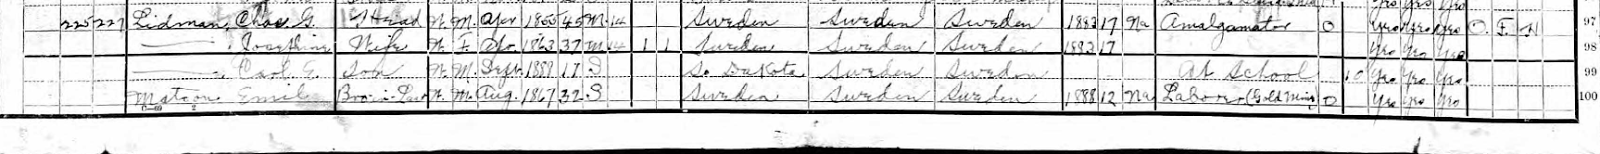 225 227 Lidman, Chas. G. Head W. M. Apr 1855 45 M. 14 Sweden Sweden Sweden 1883 17 Na Amalgamator 0 Yes Yes Yes O. F. H 97
——, Josephine Wife W. F. Apr. 1863 37 M 14 1 1 Sweden Sweden Sweden 1883 17 Yes Yes Yes 98
——, Carl E. Son W. M. Sept. S So Dakota Sweden Sweden At School 10 Yes Yes Yes 99
Matson Emil W. M. Aug. 1867 32 S Sweden Sweden Sweden 1888 12 Na Laborer (Gold Mine) 0 Yes Yes Yes 100